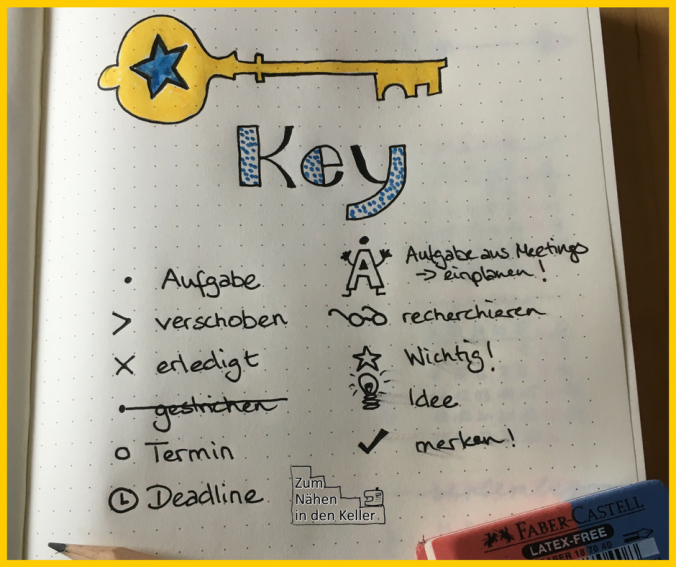 Key
• Aufgabe
> verschoben
× erledigt
• gestrichen
○ Termin
Deadline
A Aufgabe aus Meetings
→ einplanen!
recherchieren
☆ Wichtig!
Idee
✓ merken!
Zum
Nähen
in den Keller.
FABER-CASTELL
LATEX-FREE
18 70 40